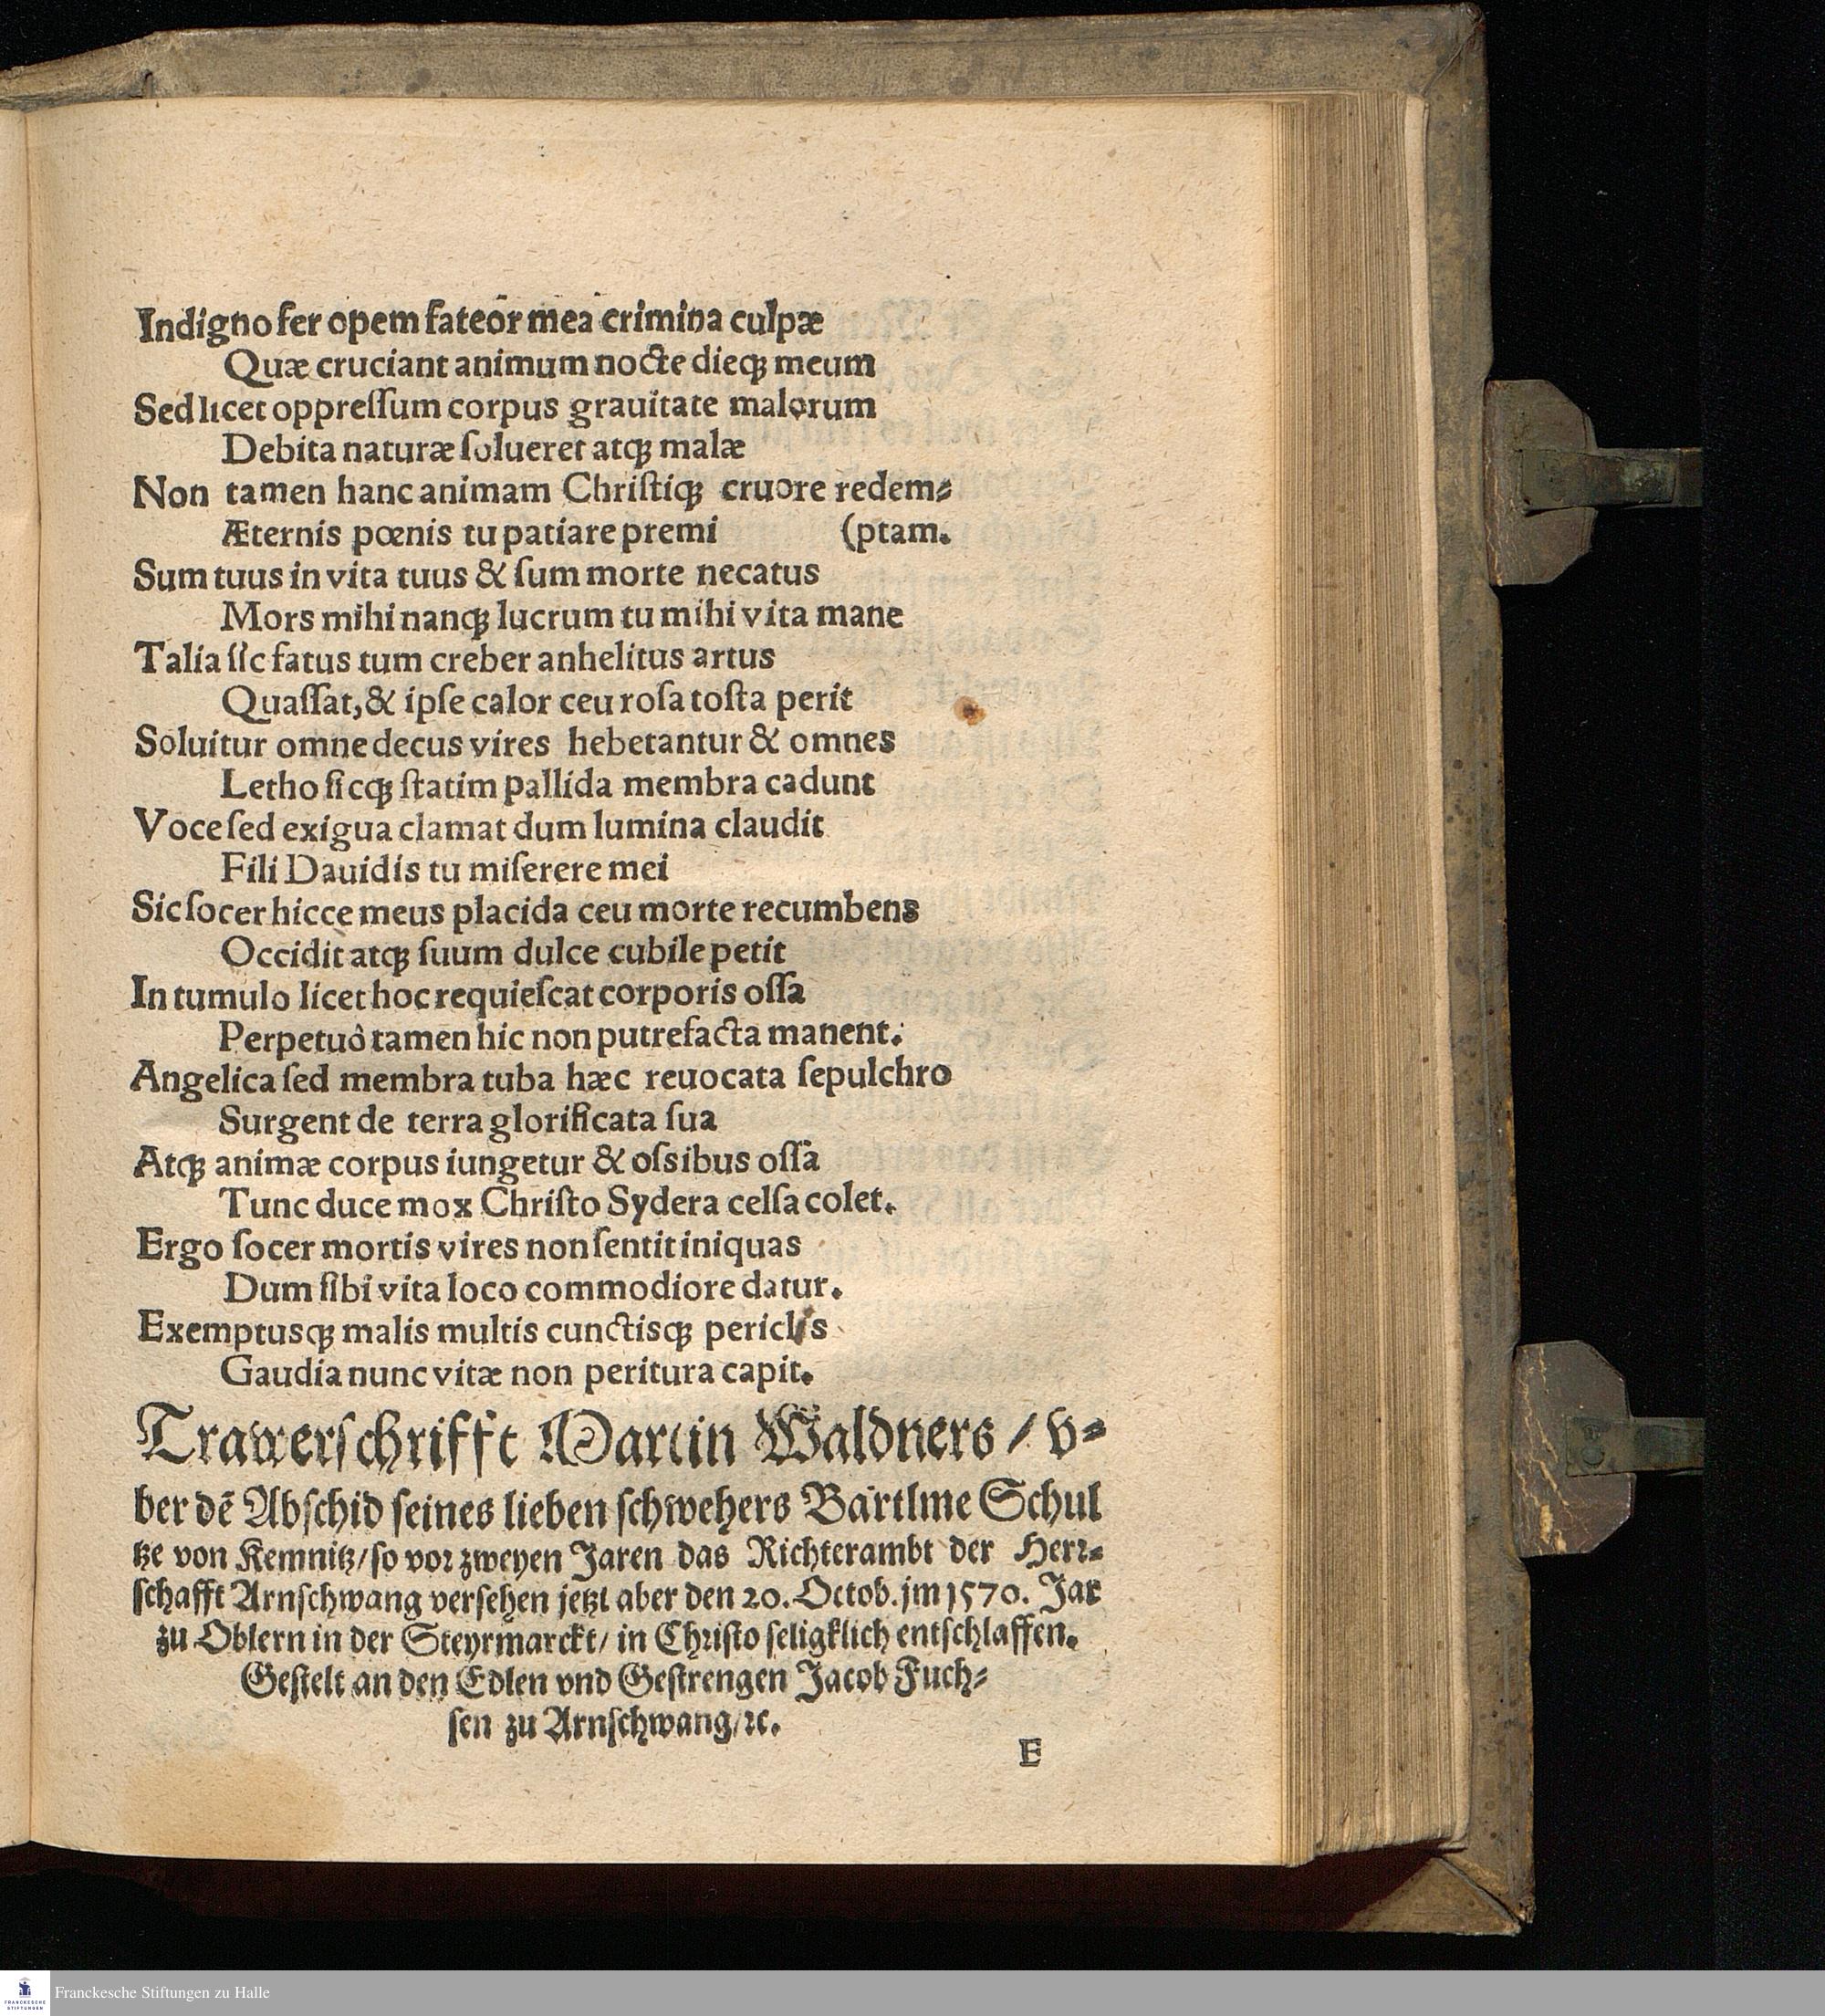 Indigno fer opem fateor mea crimina culpæ
Quæ cruciant animum nocte dieqꝫ meum
Sed licet oppreſſum corpus grauitate malorum
Debita naturæ ſolueret atqꝫ malæ
Non tamen hanc animam Chriſtiqꝫ cruore redem⸗
Æternis pœnis tu patiare premi (ptam.
Sum tuus in vita tuus & ſum morte necatus
Mors mihi nanqꝫ lucrum tu mihi vita mane
Talia ſic fatus tum creber anhelitus artus
Quaſſat, & ipſe calor ceu roſa toſta perit
Soluitur omne decus vires hebetantur & omnes
Letho ſicqꝫ ſtatim pallida membra cadunt
Voce ſed exigua clamat dum lumina claudit
Fili Dauidis tu miſerere mei
Sic ſocer hicce meus placida ceu morte recumbens
Occidit atqꝫ ſuum dulce cubile petit
In tumulo licet hoc requieſcat corporis oſſa
Perpetuò tamen hic non putrefacta manent.
Angelica ſed membra tuba hæc reuocata ſepulchro
Surgent de terra glorificata ſua
Atqꝫ animæ corpus iungetur & oſsibus oſſa
Tunc duce mox Chriſto Sydera celſa colet.
Ergo ſocer mortis vires non ſentit iniquas
Dum ſibi vita loco commodiore datur.
Exemptusqꝫ malis multis cunctisqꝫ periclis
Gaudia nunc vitæ non peritura capit.
Trawerſchrifft Martin Waldners / v⸗
ber dē Abſchid ſeines lieben ſchwehers Bartlme Schul
tze von Kemnitz/ ſo vor zweyen Jaren das Richterambt der Herr⸗
ſchafft Arnſchwang verſehen jetzt aber den 20. Octob. jm 1570. Jar
zu Oblern in der Steyrmarckt/ in Chriſto ſeligklich entſchlaffen.
Geſtelt an den Edlen vnd Geſtrengen Jacob Fuch⸗
ſen zu Arnſchwang/ ꝛc.
E
Franckesche Stiftungen zu Halle
FRANCKESCHE
STIFTUNGEN